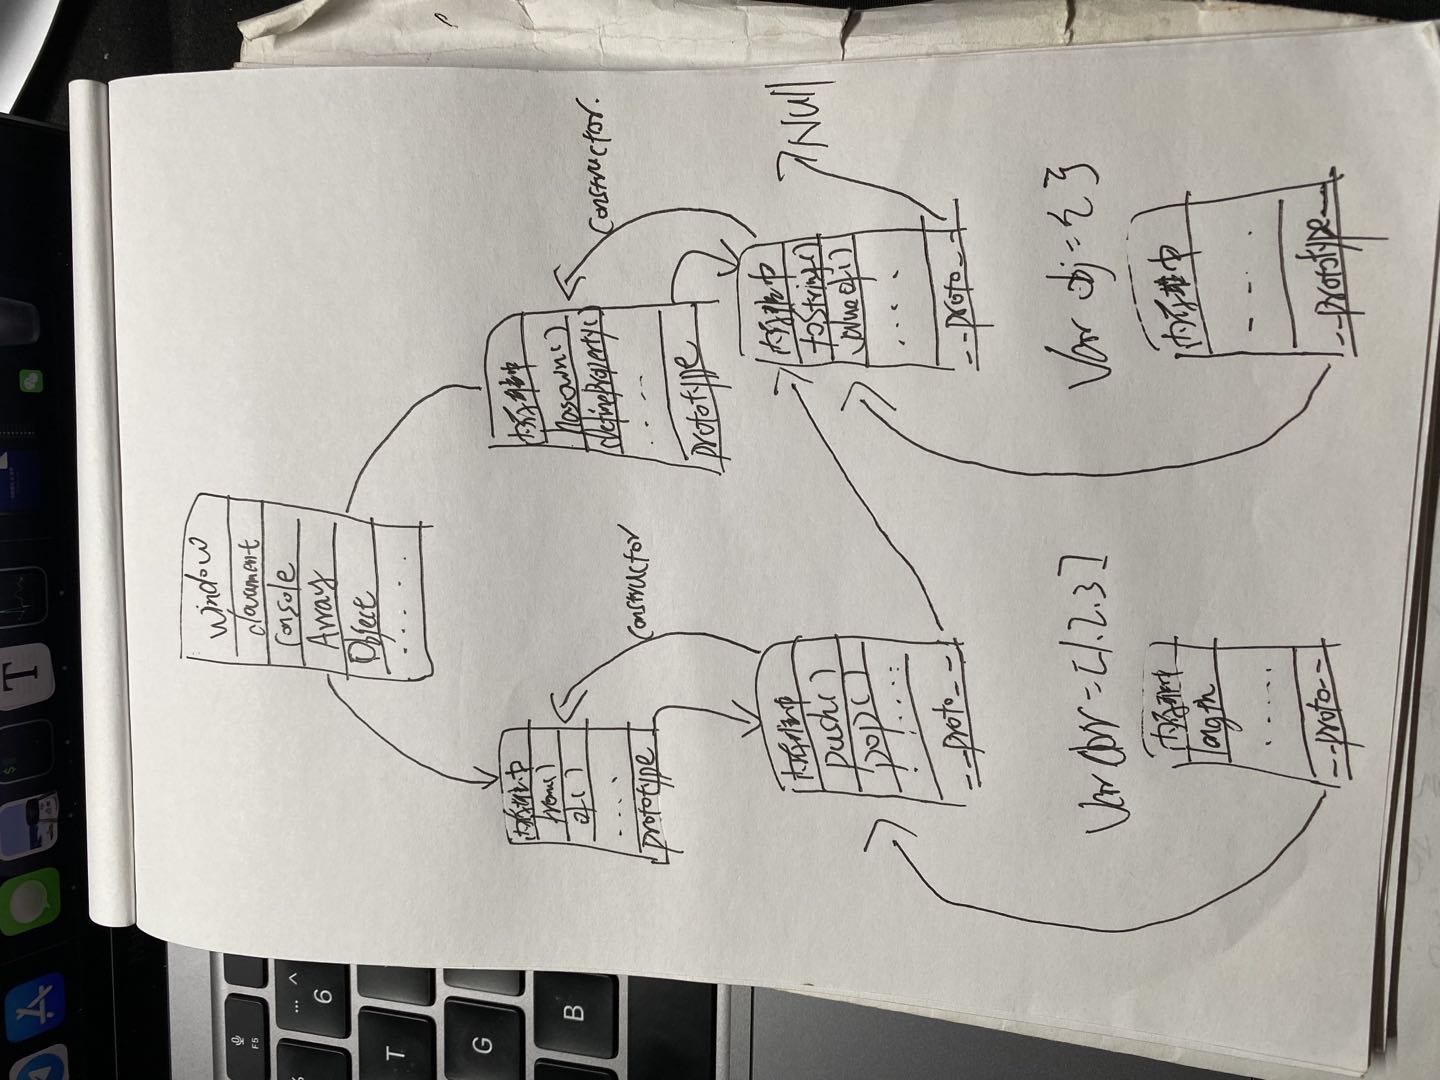 window
document
console
Array
Object
. . . . .
内存堆中
from()
of()
. . . .
prototype
constructor
内存堆中
hasOwn()
defineProperty()
. . . .
prototype
constructor.
内存堆中
push()
pop()
. . . . . .
__proto__
内存堆中
toString()
valueOf()
. . . .
__proto__
Null
Var arr = [1.2.3]
内存堆中
length
. . . . .
__proto__
Var obj = { }
内存堆中
. . . .
__prototype__
F5
... ^
6
T
G
B
T
$